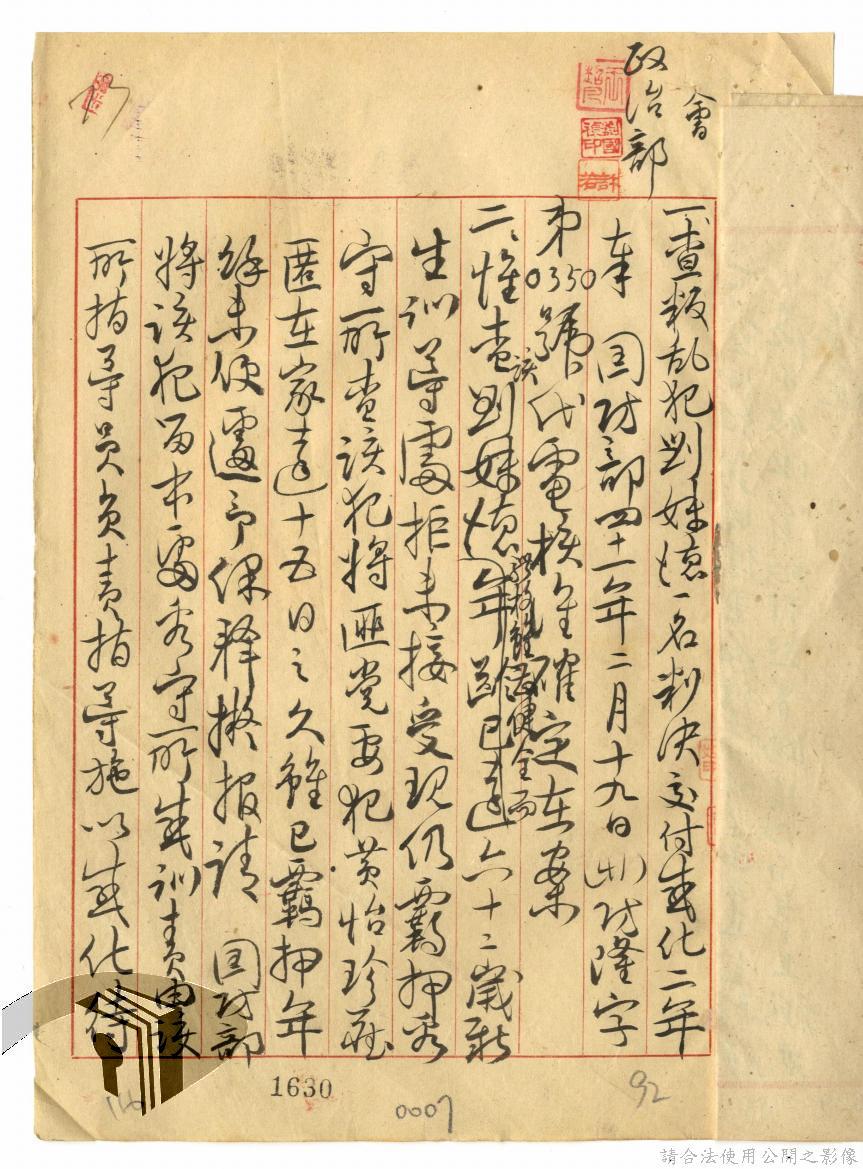 會
政治部
一、查叛乱犯劉妹憶一名判決交付感化二年
奉 国防部四十一年二月十九日(41)防隆字
第0350號代電核准確定在案
二、惟查該劉妹憶年齡已達六十二歲新
體格雖健全而
生訓導處拒未接受現仍羈押看
守所查該犯將匪党要犯黃怡珍藏
匿在家達十五日之久雖已羈押年
餘未便遽予保释擬报請 国防部
將該犯留本處看守所感訓責由該
所指導員負責指導施以感化待
1630
0007
92
116
請合法使用公開之影像